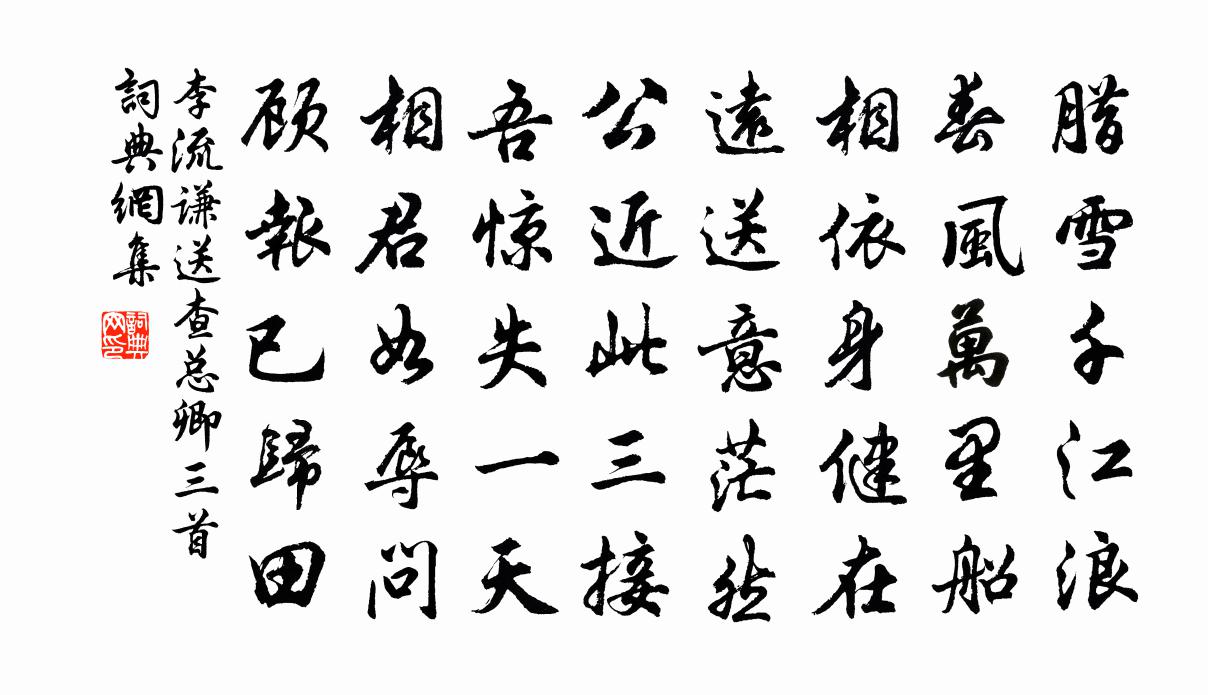 腊雪千江浪
春風萬里船
相依身健在
遠送意茫然
公近此三接
吾惊失一天
相君如辱問
顾報已歸田
李流谦送查总卿三首
詞典網集
詞典网印